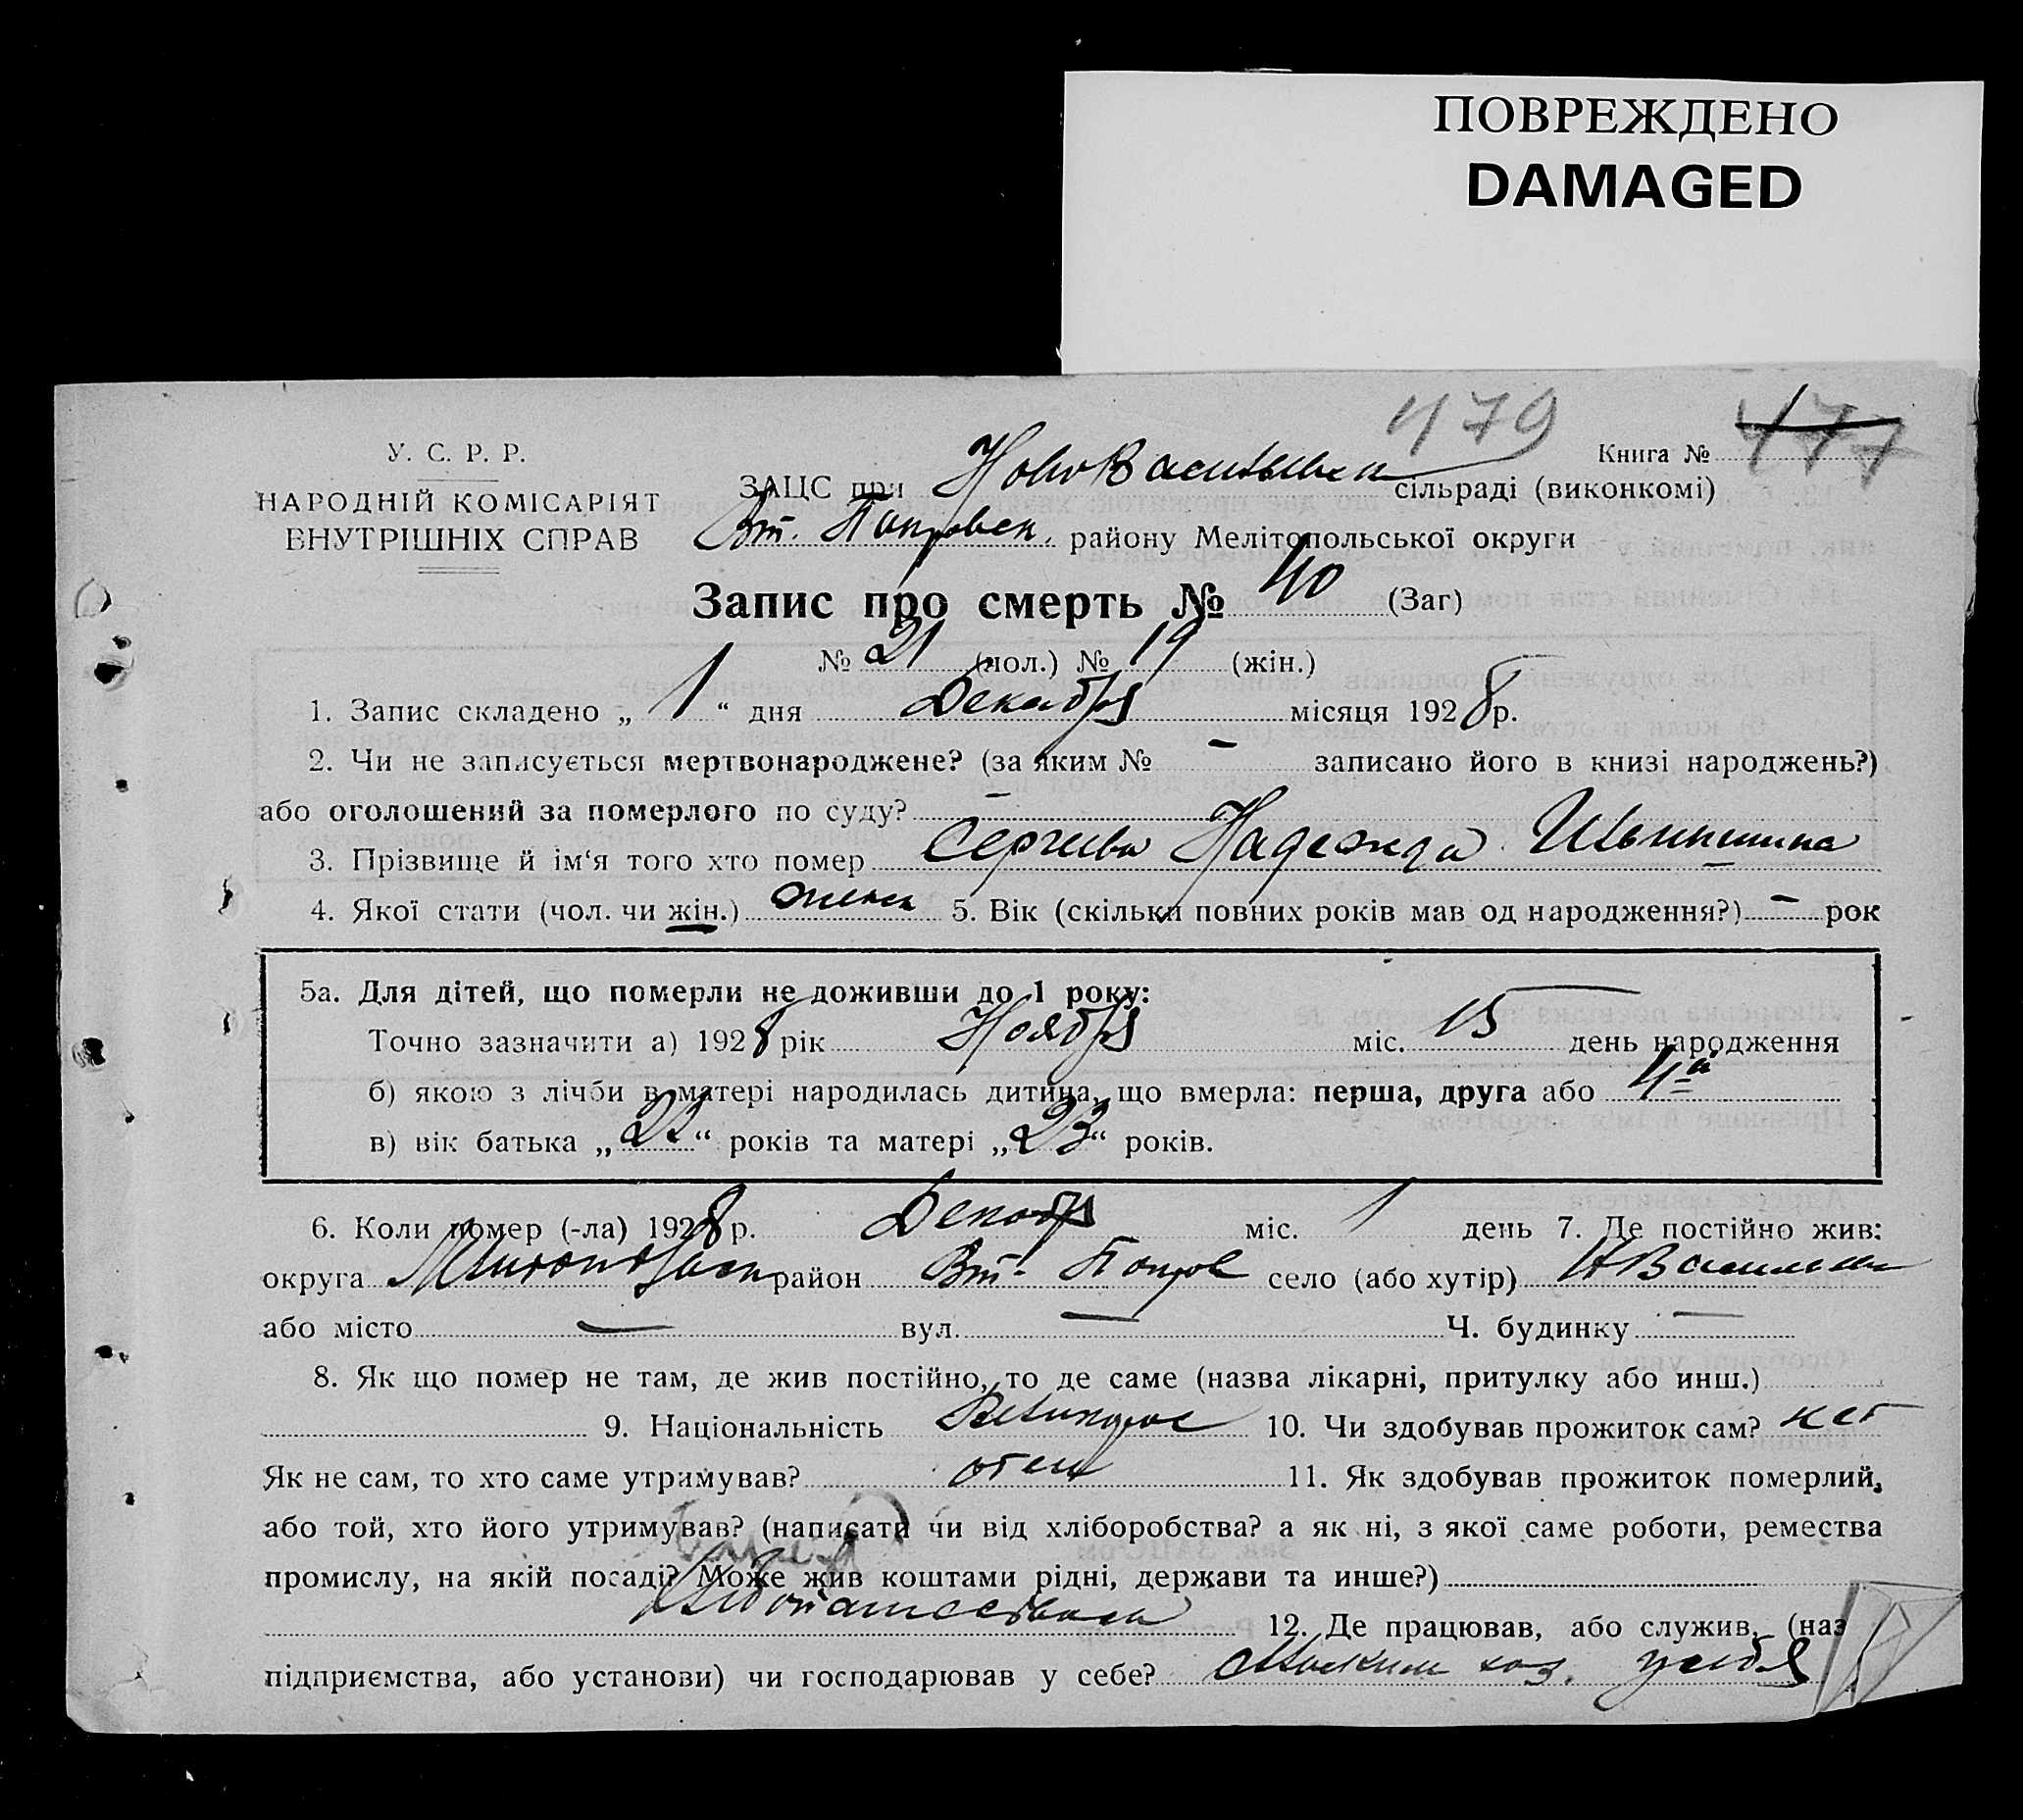 ПОВРЕЖДЕНО
DAMAGED
479
У. С. Р. Р.
НАРОДНІЙ КОМІСАРІЯТ
ВНУТРІШНІХ СПРАВ
Книга № 477
ЗАЦС при сільраді (виконкомі)
Вт. Покровск. району Мелітопольської округи
Запис про смерть № 40 (Заг)
№ 21 (чол.) № 19 (жін.)
1. Запис складено „ 1 “ дня Декабря місяця 1928 р.
2. Чи не записується мертвонароджене? (за яким № – записано його в книзі народжень?)
або оголошений за померлого по суду? –
3. Прізвище й ім‘я того хто помер Надежда
4. Якої стати (чол. чи жін.) женск 5. Вік (скільки повних років мав од народження?) – рок
5а. Для дітей, що померли не доживши до 1 року:
Точно зазначити а) 1928 рік Ноября міс. 15 день народження
б) якою з лічби в матері народилась дитина, що вмерла: перша, друга або 4-й
в) вік батька „ 22 “ років та матері „ 23 “ років.
6. Коли помер (-ла) 1928 р. Декабря міс. 1 день 7. Де постійно жив:
округа район Вт. Покров село (або хутір)
або місто — вул. — Ч. будинку —
8. Як що помер не там, де жив постійно, то де саме (назва лікарні, притулку або инш.)
9. Національність 10. Чи здобував прожиток сам? нет
Як не сам, то хто саме утримував? отец 11. Як здобував прожиток померлий,
або той, хто його утримував? (написати чи від хліборобства? а як ні, з якої саме роботи, ремества
промислу, на якій посаді? Може жив коштами рідні, держави та инше?)
12. Де працював, або служив, (наз
підприємства, або установи) чи господарював у себе? хоз. у себя